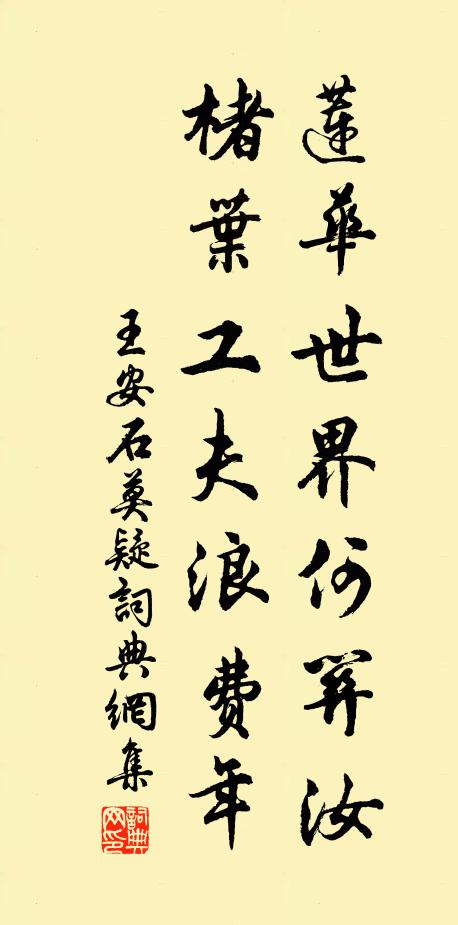 蓮華世界何關汝
楮葉工夫浪費年
王安石莫疑詞典網集
詞典網印